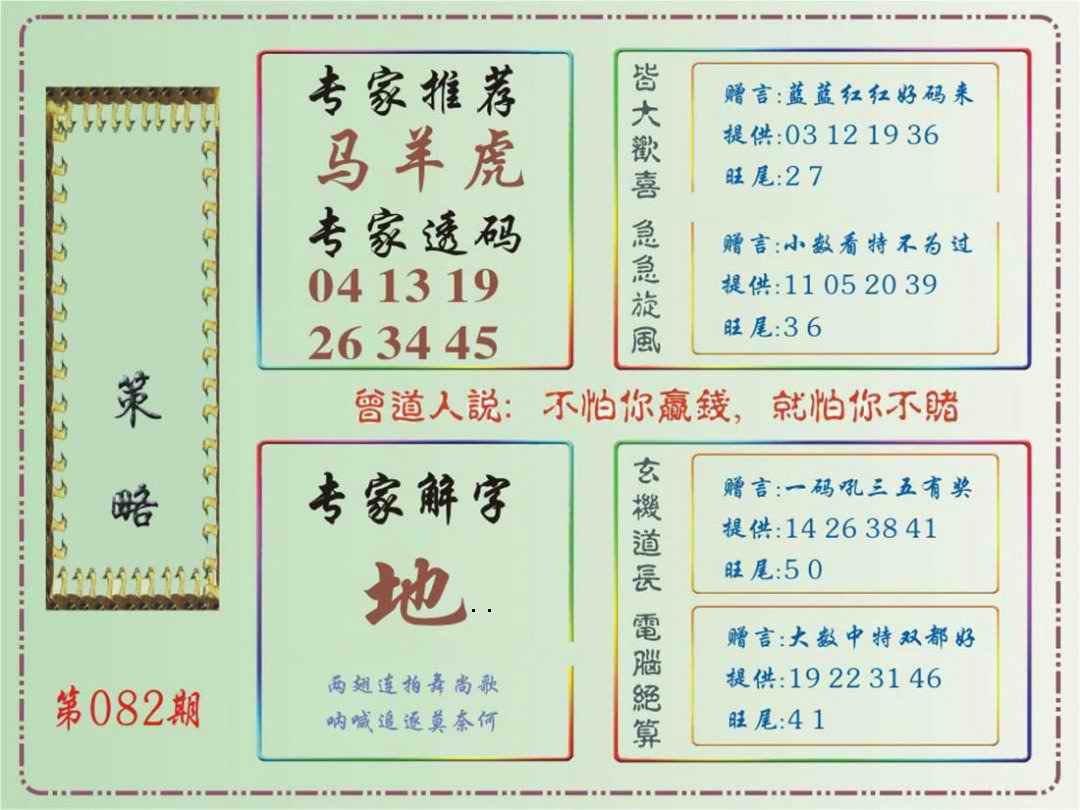 策略
第082期
专家推荐
马羊虎
专家透码
04 13 19
26 34 45
皆大歡喜
赠言:蓝蓝红红好码来
提供:03 12 19 36
旺尾:2 7
急急旋風
赠言:小数看特不为过
提供:11 05 20 39
旺尾:3 6
曾道人説:不怕你贏錢,就怕你不賭
专家解字
地..
两翅连拍舞尚歌
呐喊追逐莫奈何
玄機道長
赠言:一码吼三五有奖
提供:14 26 38 41
旺尾:5 0
電腦絕算
赠言:大数中特双都好
提供:19 22 31 46
旺尾:4 1